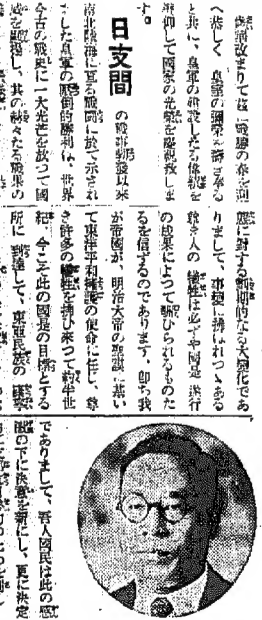 改まりて茲に戰勝の春を迎
へ恭しく皇室の彌榮を壽ぎ奉る
と共に、皇軍の建設したる偉績を
仰して國家の光榮を慶祝致しま
す。
日支間の戰端勃發以來
南北陸海に亙る戰鬪に於て示され
ました皇軍の壓倒的勝利は、世界
今古の戰史に一大光芒を放つて國
威を發揚し、其の赫々たる戰果の
態に對する劃期的なる大變化であ
りまして、事變に拂はれつゝある
尊き人の犧牲は必ずや國是遂行
の成果によつて償ひられるものた
るを信ずるのであります、卽ち我
が帝國が、明治大帝の聖謨に基い
て東洋平和擁護の使命に任じ、尊
き許多の犧牲を拂ひ來つて約半世
紀、今こそ此の國是の目標とする
所に到達して、東亞民族の
でありまして、吾人國民は此の感
の下に決意を新にし、更に決定